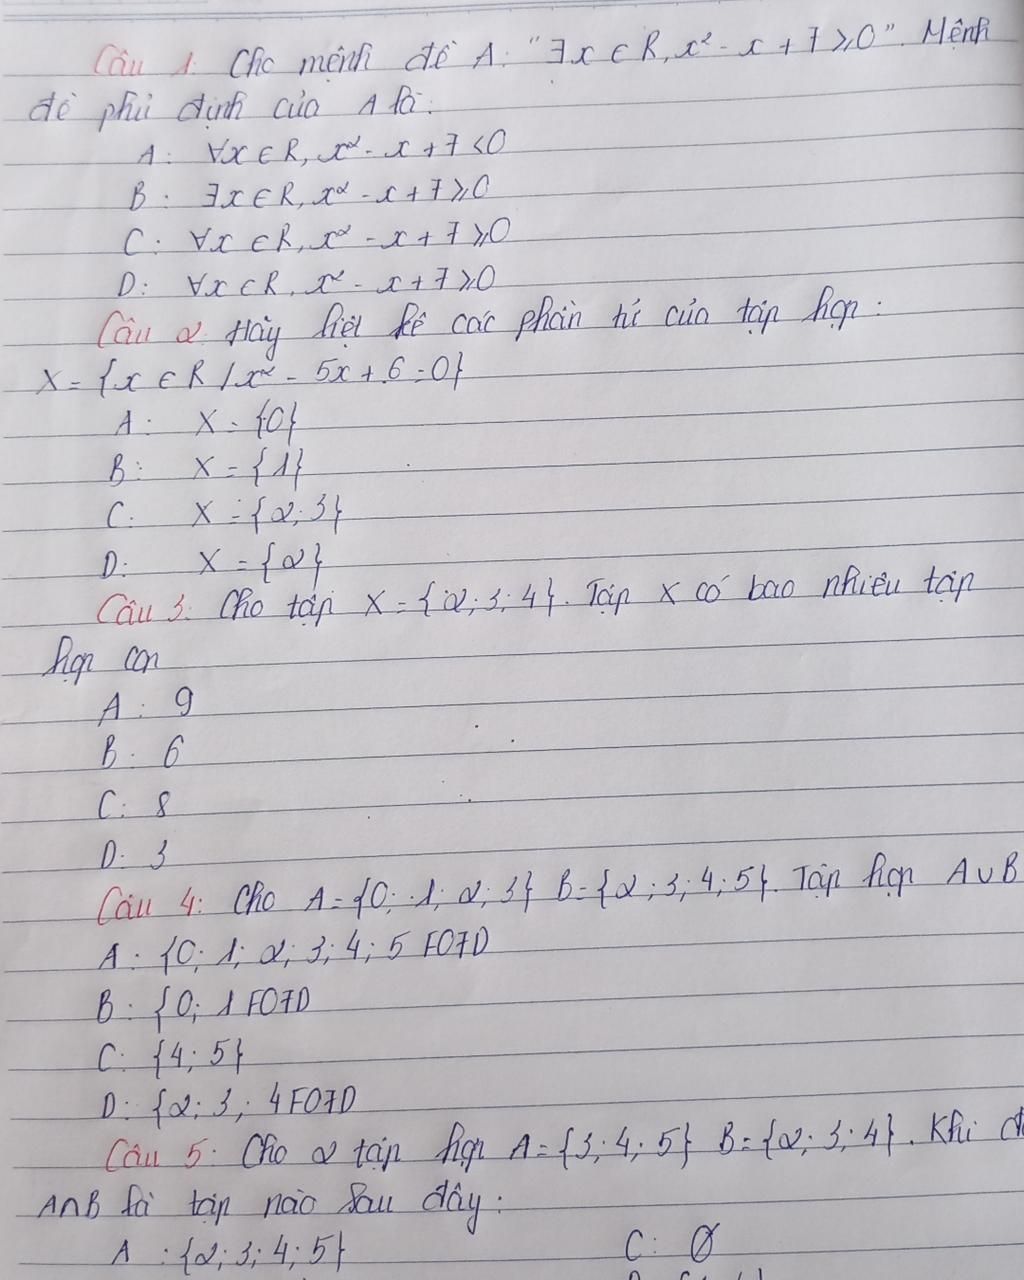 Câu 1. Cho mệnh đề A: "∃x ∈ R, x² - x + 7 ⩾ 0". Mệnh
đề phủ định của A là:
A: ∀x ∈ R, x² - x + 7 < 0
B: ∃x ∈ R, x² - x + 7 ⩾ 0
C: ∀x ∈ R, x² - x + 7 ⩾ 0
D: ∀x ⊂ R, x² - x + 7 ⩾ 0
Câu 2. Hãy liệt kê các phần tử của tập hợp:
X = {x ∈ R / x² - 5x + 6 = 0}
A: X = {0}
B: X = {1}
C: X = {2; 3}
D: X = {2}
Câu 3: Cho tập X = {2; 3; 4}. Tập X có bao nhiêu tập
hợp con
A: 9
B: 6
C: 8
D: 3
Câu 4: Cho A = {0; 1; 2; 3} B = {2; 3; 4; 5}. Tập hợp A∪B
A: {0; 1; 2; 3; 4; 5 F07D
B: {0; 1 F07D
C: {4; 5}
D: {2; 3; 4 F07D
Câu 5: Cho 2 tập hợp A = {3; 4; 5} B = {2; 3; 4}. Khi
A∩B là tập nào sau đây:
A: {2; 3; 4; 5} C: ∅